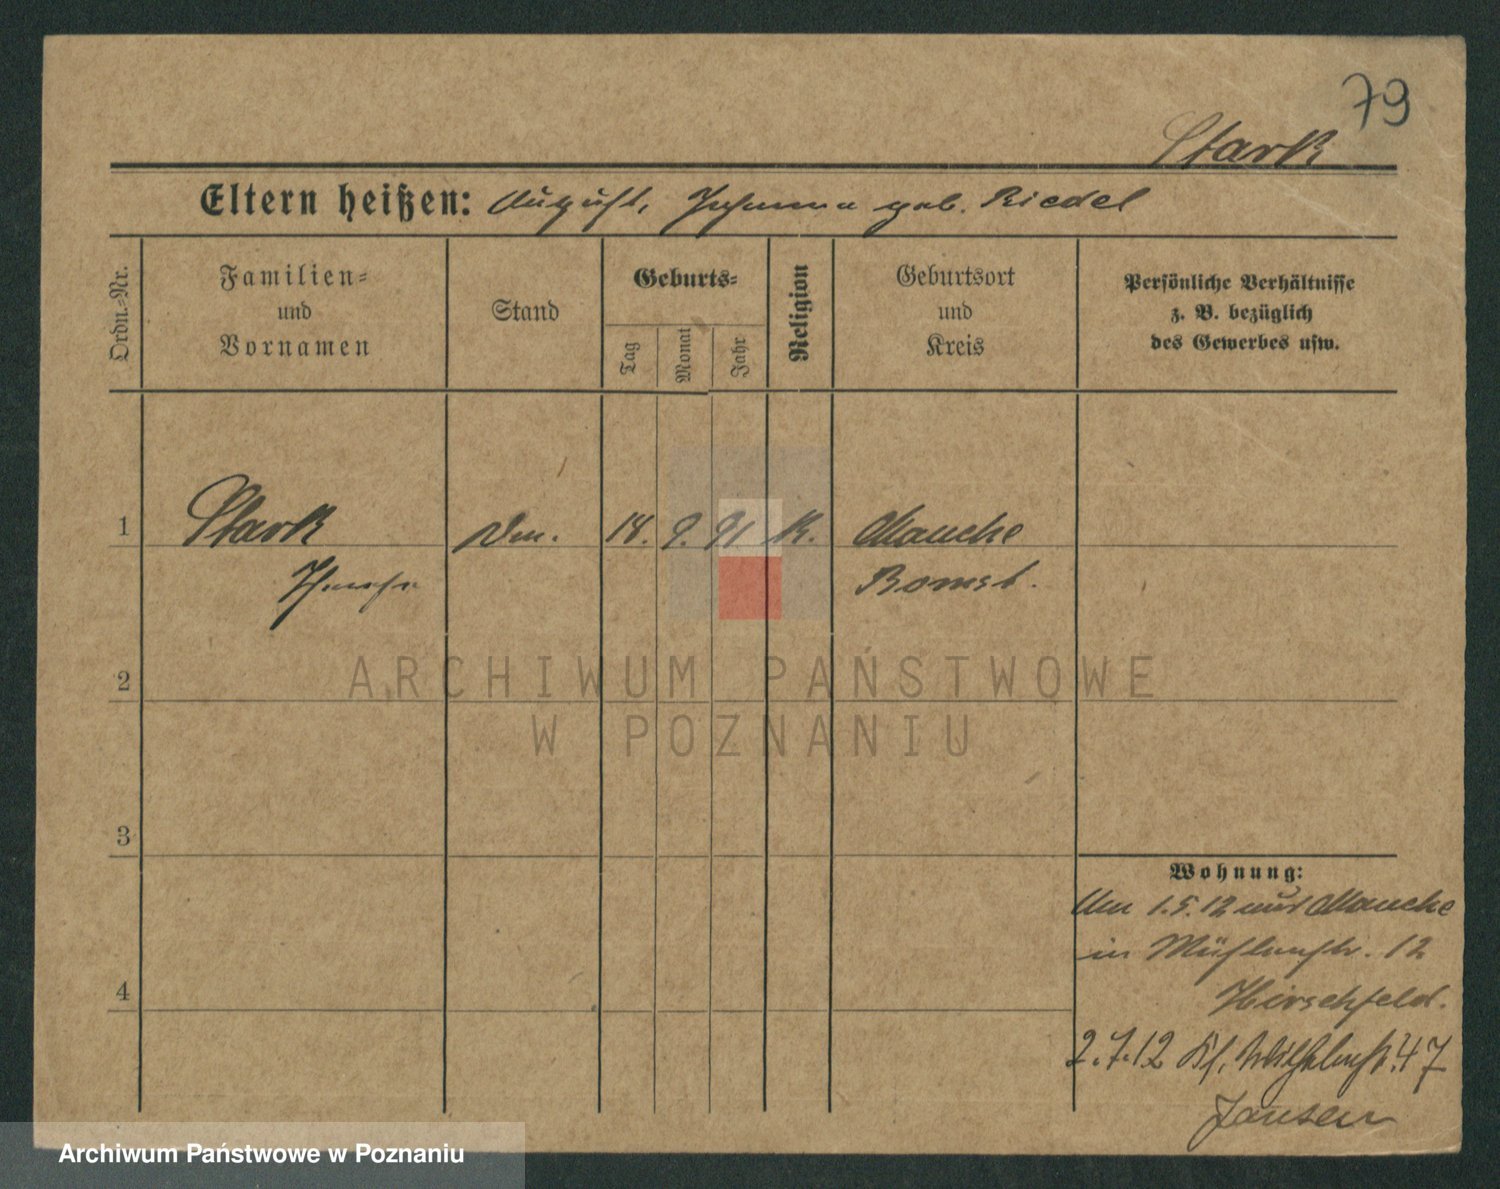 79
Stark
Eltern heißen: August, Johanna geb. Riedel
Ordn.-Nr.
Familien-
und
Vornamen
Stand
Geburts-
Tag
Monat
Jahr
Religion
Geburtsort
und
Kreis
Persönliche Verhältnisse
z. B. bezüglich
des Gewerbes usw.
1
Stark
Dm.
18.
9.
91
K.
Mauche
Bomst.
2
3
4
Wohnung:
Um 1.5.12 aus Mauche
in Mühlenstr. 12
Hirschfeld.
2.7.12 Kl. Wilhelmstr. 47
Jansen
ARCHIWUM PAŃSTWOWE
W POZNANIU
Archiwum Państwowe w Poznaniu